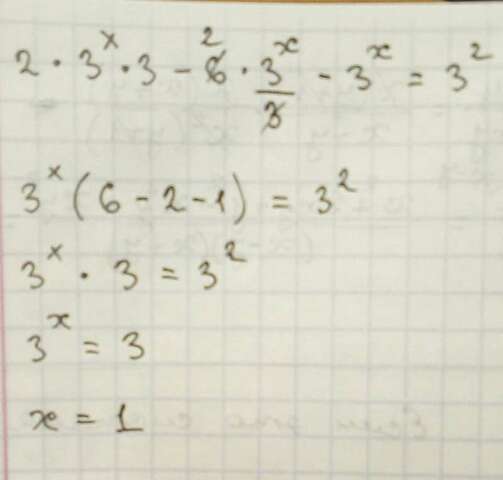 2 · 3^x · 3 - 6̸^2 · 3^x/3̸ - 3^x = 3^2
3^x (6 - 2 - 1) = 3^2
3^x · 3 = 3^2
3^x = 3
x = 1